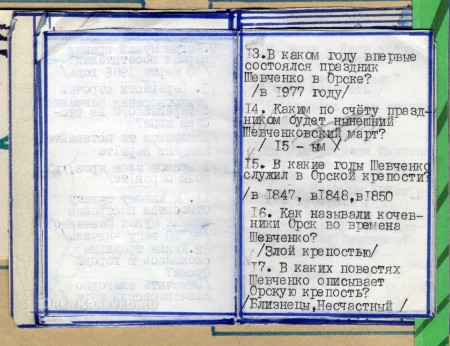 13.В каком году впервые
состоялся праздник
Шевченко в Орске?
/в 1977 году/
14. Каким по счёту празд-
ником будет нынешний
Шевченковский март?
/ 15 - ым /
15. В какие годы Шевченко
служил в Орской крепости?
/в 1847, в1848,в1850
16. Как называли кочев-
ники Орск во времена
Шевченко?
/Злой крепостью/
17. В каких повестях
Шевченко описывает
Орскую крепость?
/Близнецы,Несчастный /